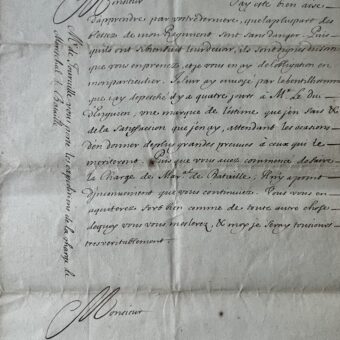 Monsieur J'ay esté bien aise
d'apprendre par vostre derniere, que la pluspart des
blessez de mon Regiment sont sans danger. Puis
qu'ils ont si bien fait leur devoir, ils sont dignes du soin
que vous en prenez, et je vous en ay de l'obligation en
mon particulier. Je leur ay envoyé par le Gentilhomme
que j'ay depesché il y a quatre jours à Mr. Le duc
d'Enguien, une marque de l'estime que j'en fais &
de la satisfaction que j'en ay, attendant les occasions
d'en donner de plus grandes preuves à ceux qui le
meriteront. Puis que vous avez commencé de faire
la Charge de Mar.al de Bataille, Il n'y a point
d'inconvenient que vous continuiez. Vous vous en
aquiterez fort bien comme de toute autre chose
de quoy vous vous meslerez, & moy je seray tousiours
tres veritablement.
Monsieur
Mr. de vous porte les expeditions de la charge de
Mareschal de Bataille